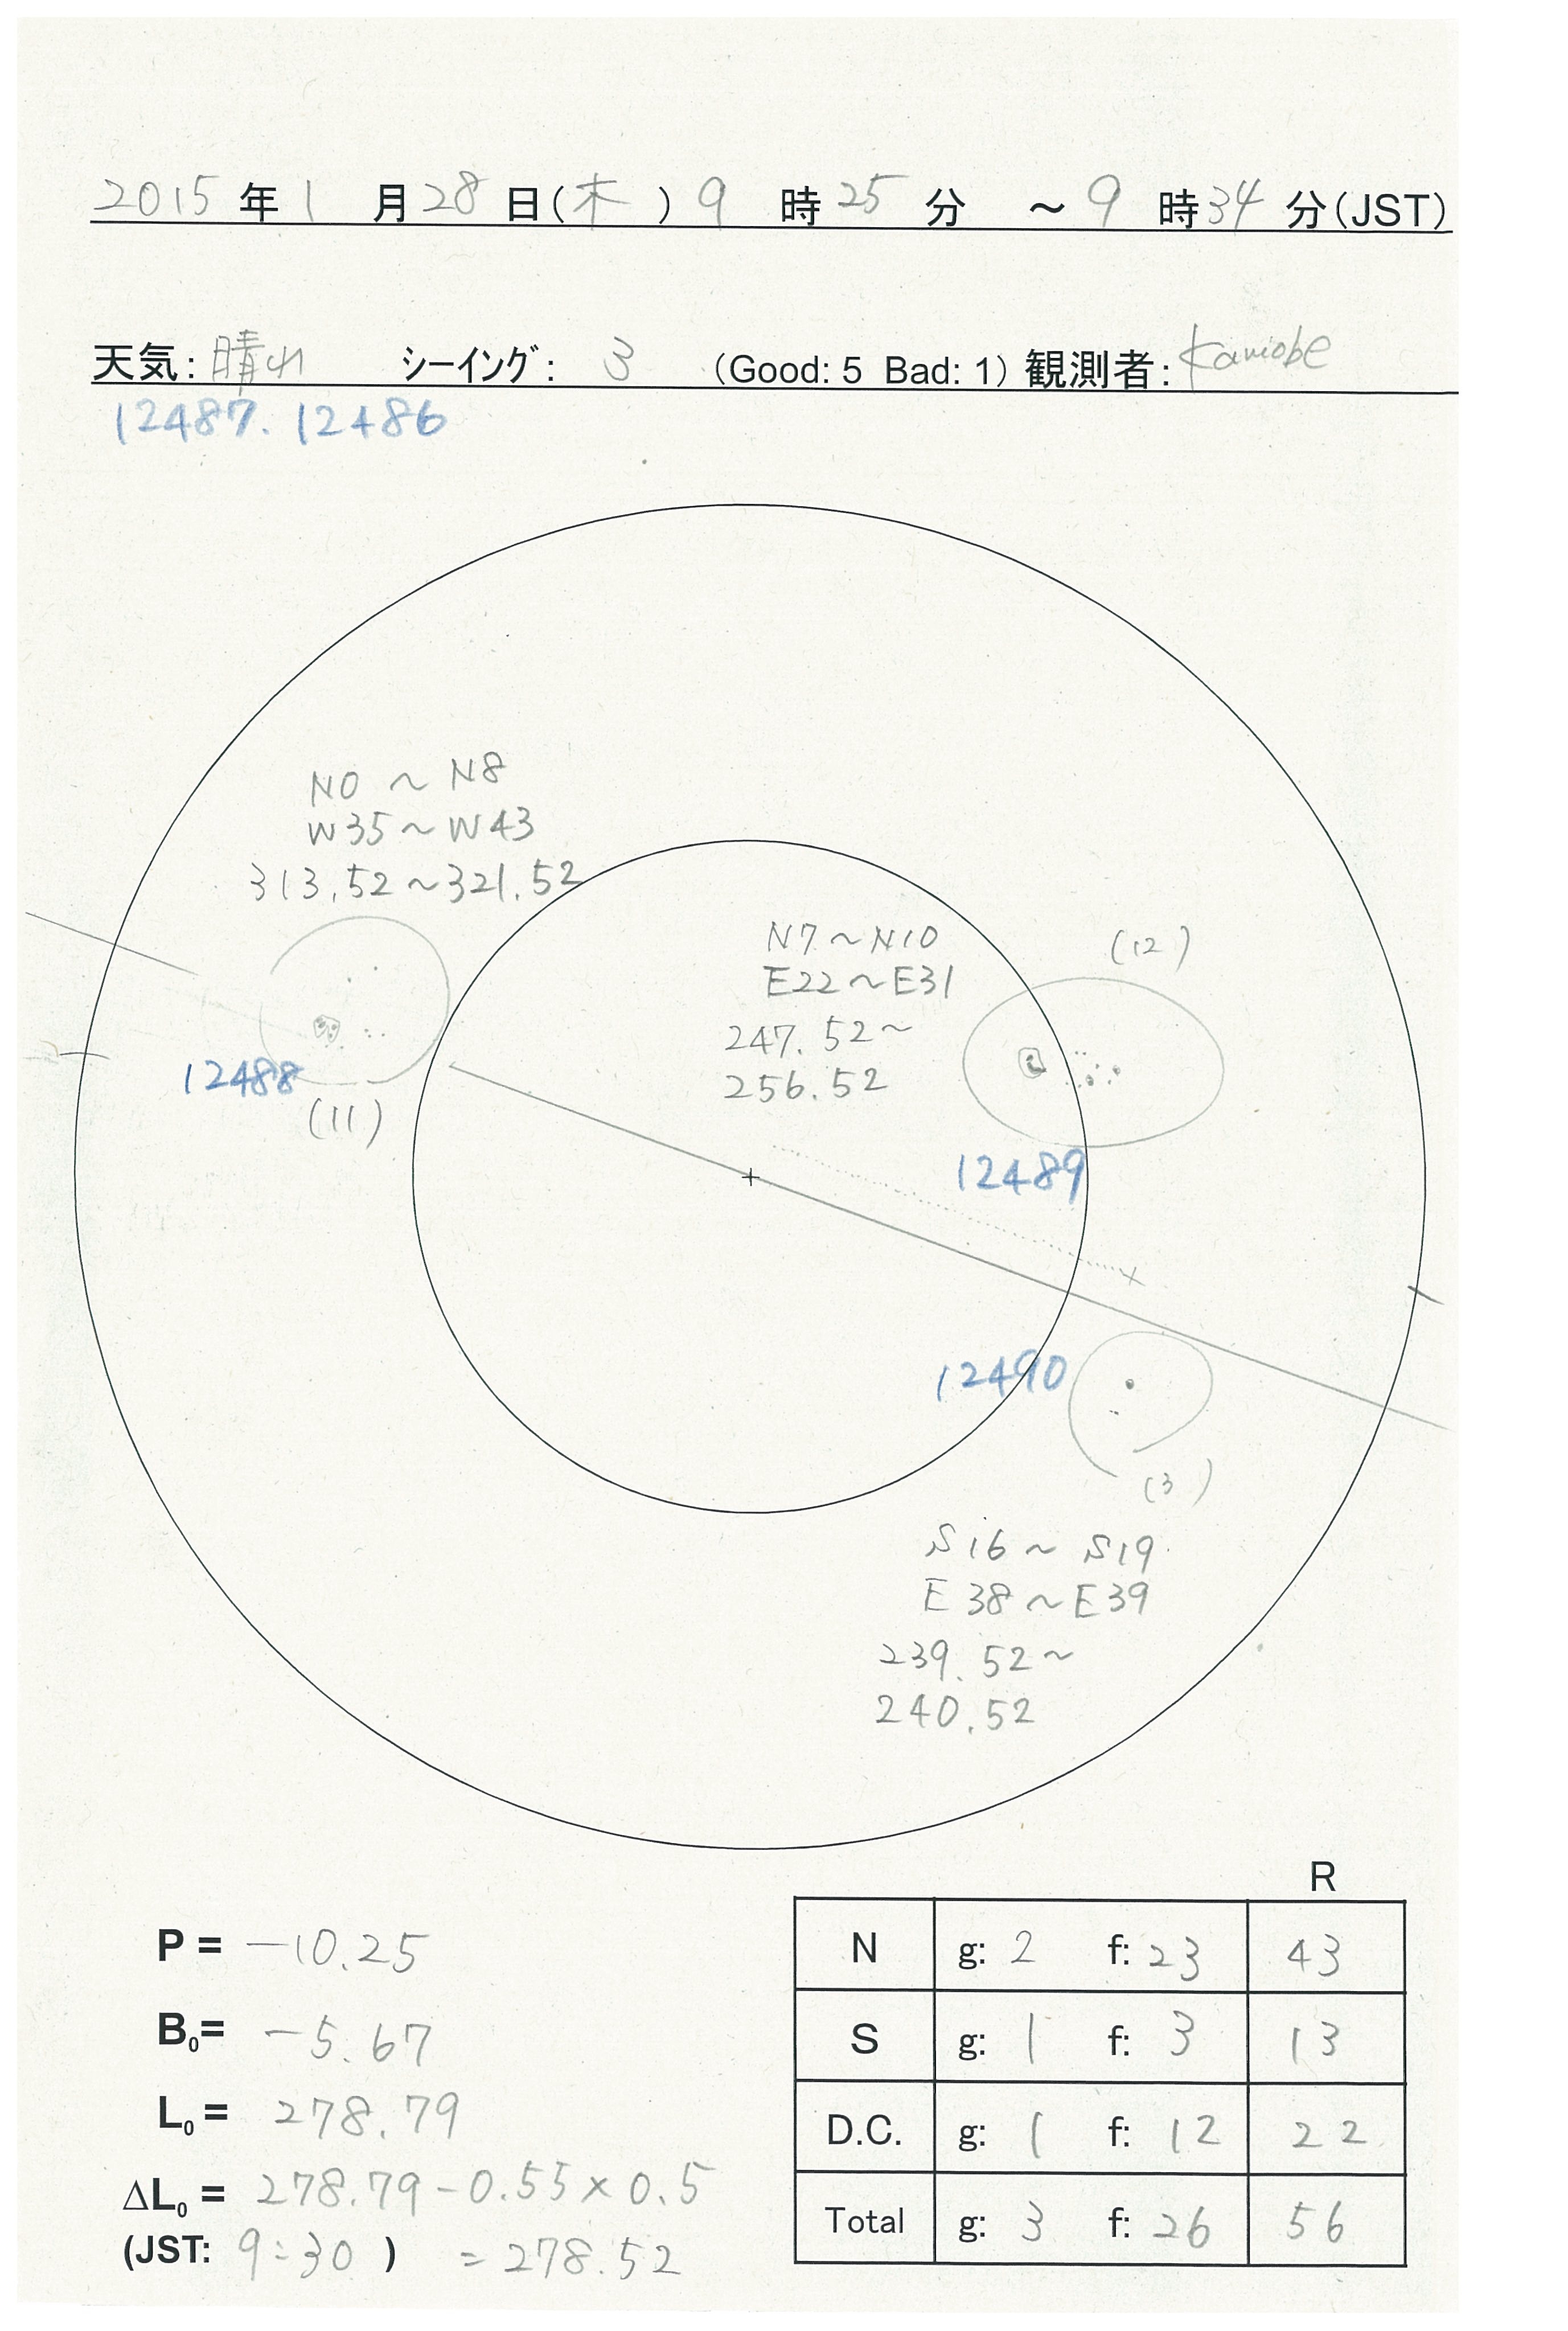 2015年1月28日(木)9時25分～9時34分(JST)
天気:晴れ シーイング: 3 (Good: 5 Bad: 1)観測者:Kamobe
12487. 12486
N0～N8
W35～W43
313.52～321.52
12488
(11)
N7～N10
E22～E31
247.52～
256.52
(12)
12489
12490
(3)
S16～S19
E38～E39
239.52～
240.52
P = -10.25
B0= -5.67
L0= 278.79
ΔL0= 278.79-0.55×0.5
(JST: 9:30) =278.52
R
N g: 2 f: 23 43
S g: 1 f: 3 13
D.C. g: 1 f: 12 22
Total g: 3 f: 26 56